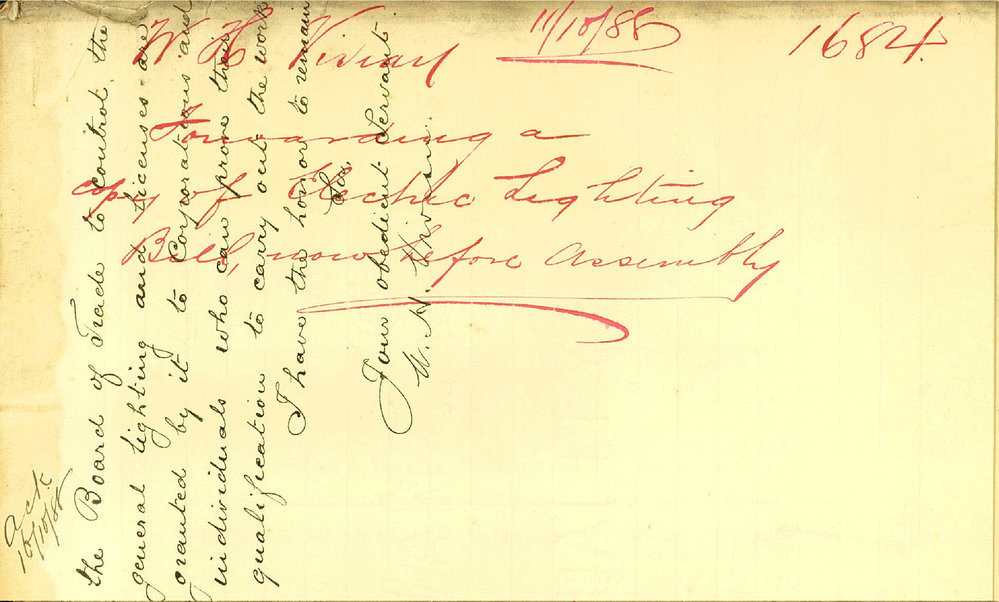 W H Vivian 11/10/88 1684.
Forwarding a
copy of Electric Lighting
Bill, now before Assembly
the Board of Trade to control the
general lighting and licenses are
granted by it to Corporations and
Individuals who can prove their
qualification to carry out the work
I have the honor to remain
Sir,
Your obedient Servant
W. H. Vivian.
ack
16/10/88